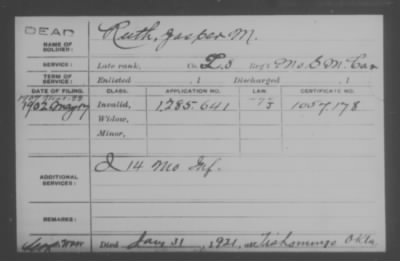 DEAD
NAME OF SOLDIER: Ruth, Jasper M.
SERVICE: Late rank, Co. L. 3 Reg't Mo. S. M. Cav
TERM OF SERVICE: Enlisted , 1 Discharged , 1
DATE OF FILING. CLASS. APPLICATION NO. LAW. CERTIFICATE NO.
1902 May 17 Invalid, 1,285,641 1057178
Widow,
Minor,
ADDITIONAL SERVICES: I 14 Mo Inf.
REMARKS:
Died Jan 31, 1921, at Tishomingo Okla.